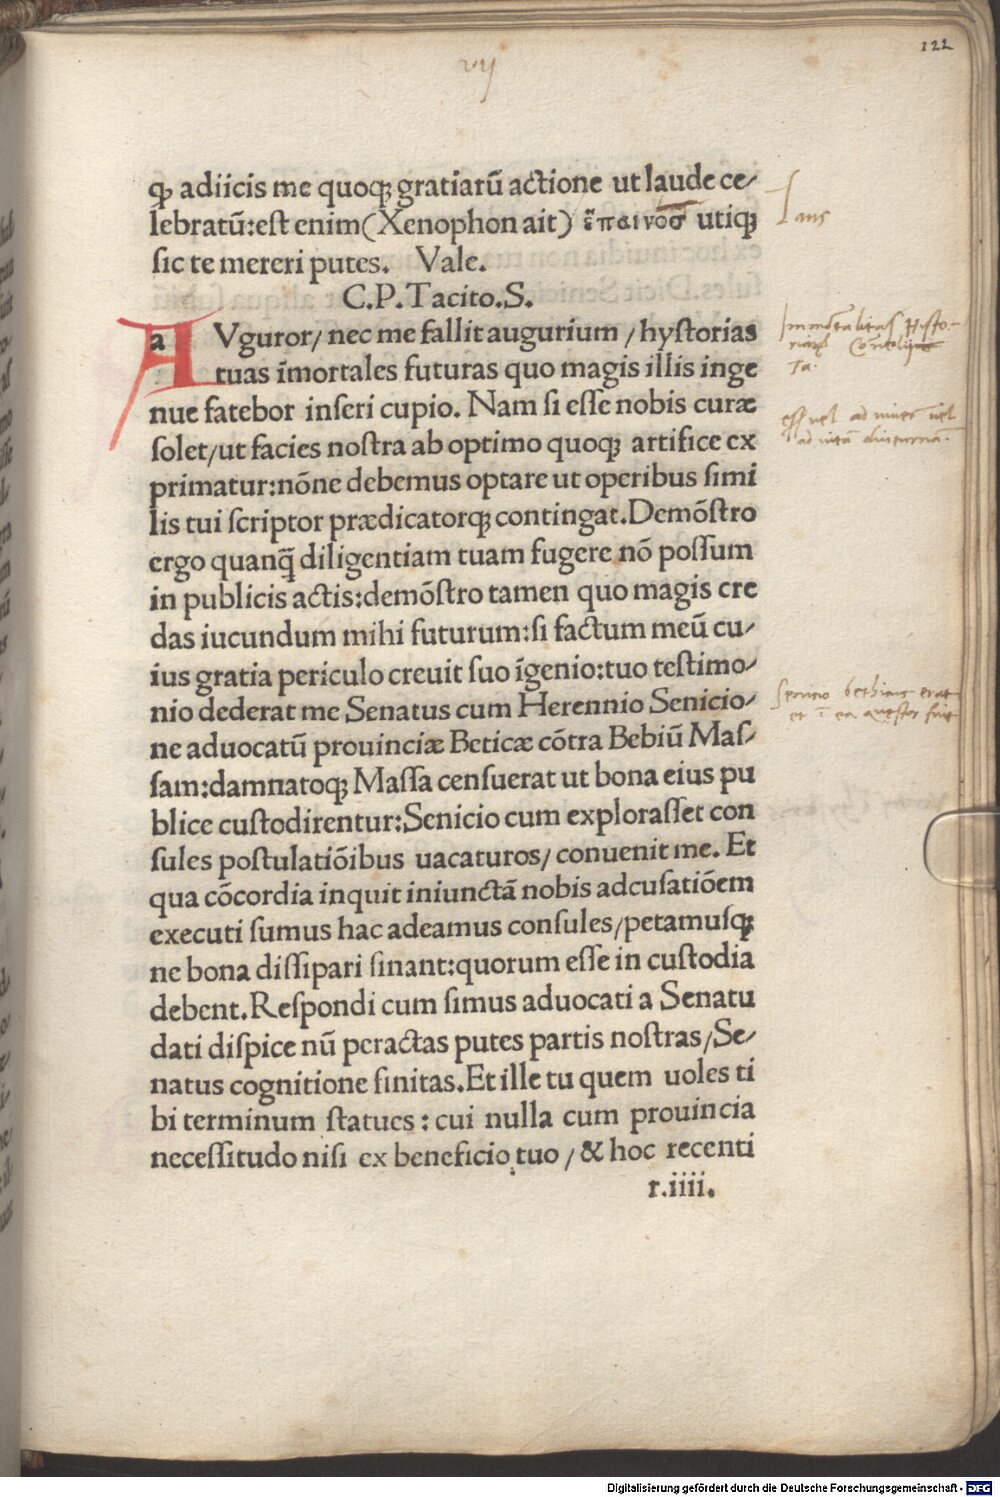 122
vij
qꝫ adiicis me quoqꝫ gratiarū actione ut laude ce/
lebratū:est enim(Xenophon ait) ἔπαινοσ utiqꝫ
ſic te mereri putes. Vale.
C.P.Tacito.S.
a
AVguror/ nec me fallit augurium / hyſtorias
tuas īmortales futuras quo magis illis inge
nue fatebor inſeri cupio. Nam ſi eſſe nobis curæ
ſolet/ut facies noſtra ab optimo quoqꝫ artifice ex
primatur:nōne debemus optare ut operibus ſimi
lis tui ſcriptor prædicatorqꝫ contingat.Demōſtro
ergo quanq̄ diligentiam tuam fugere nō poſſum
in publicis actis:demōſtro tamen quo magis cre
das iucundum mihi futurum:ſi factum meū cu/
ius gratia periculo creuit ſuo īgenio:tuo teſtimo/
nio dederat me Senatus cum Herennio Senicio/
ne aduocatū prouinciæ Beticæ cōtra Bebiū Maſ/
ſam:damnatoqꝫ Maſſa cenſuerat ut bona eius pu
blice cuſtodirentur:Senicio cum exploraſſet con
ſules poſtulatiōibus uacaturos/ conuenit me. Et
qua cōcordia inquit iniunctā nobis adcuſatiōem
executi ſumus hac adeamus conſules/petamuſqꝫ
ne bona diſſipari ſinant:quorum eſſe in cuſtodia
debent.Reſpondi cum ſimus aduocati a Senatu
dati diſpice nū peractas putes partis noſtras/Se/
natus cognitione finitas.Et ille tu quem uoles ti
bi terminum ſtatues : cui nulla cum prouincia
neceſſitudo niſi ex beneficio tuo / & hoc recenti
r.iiii.
laus
Immortalitas Histo-
ad uitā diuturnā.
Senicio bethicus erat
et ī ea questor fuit
Digitalisierung gefördert durch die Deutsche Forschungsgemeinschaft - DFG